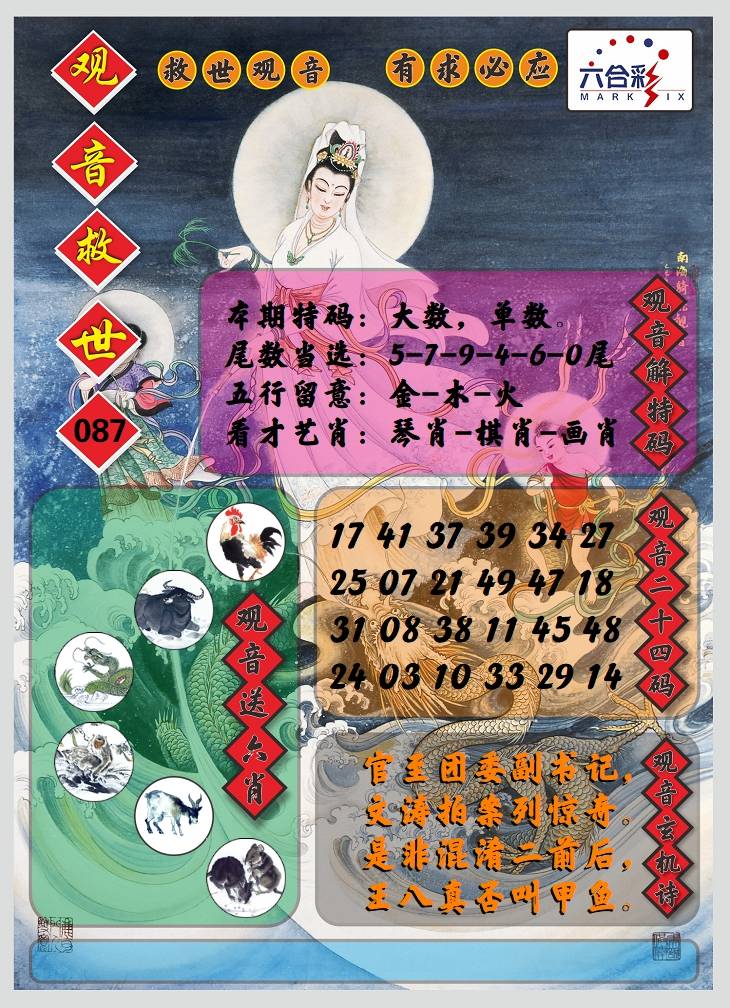 观音救世
087
救世观音 有求必应
六合彩
MARK SIX
观音解特码
本期特码：大数，单数。
尾数当选：5-7-9-4-6-0尾
五行留意：金-木-火
看才艺肖：琴肖-棋肖-画肖
观音二十四码
17 41 37 39 34 27
25 07 21 49 47 18
31 08 38 11 45 48
24 03 10 33 29 14
观音送六肖
观音玄机诗
官至团委副书记，
文涛拍案列惊奇。
是非混淆二前后，
王八真否叫甲鱼。